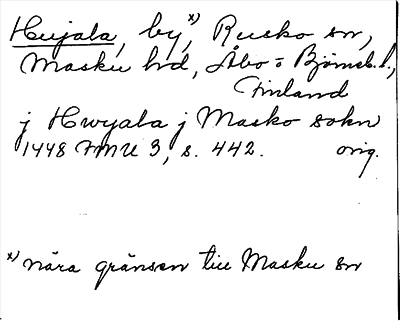 Hujala, by,x) Rusko sn,
Masku hd, Åbo o Björneb. l.,
Finland
j Hwyala j Masko sokn
1448 FMU 3, s. 442. orig.
x) nära gränsen till Masku sn